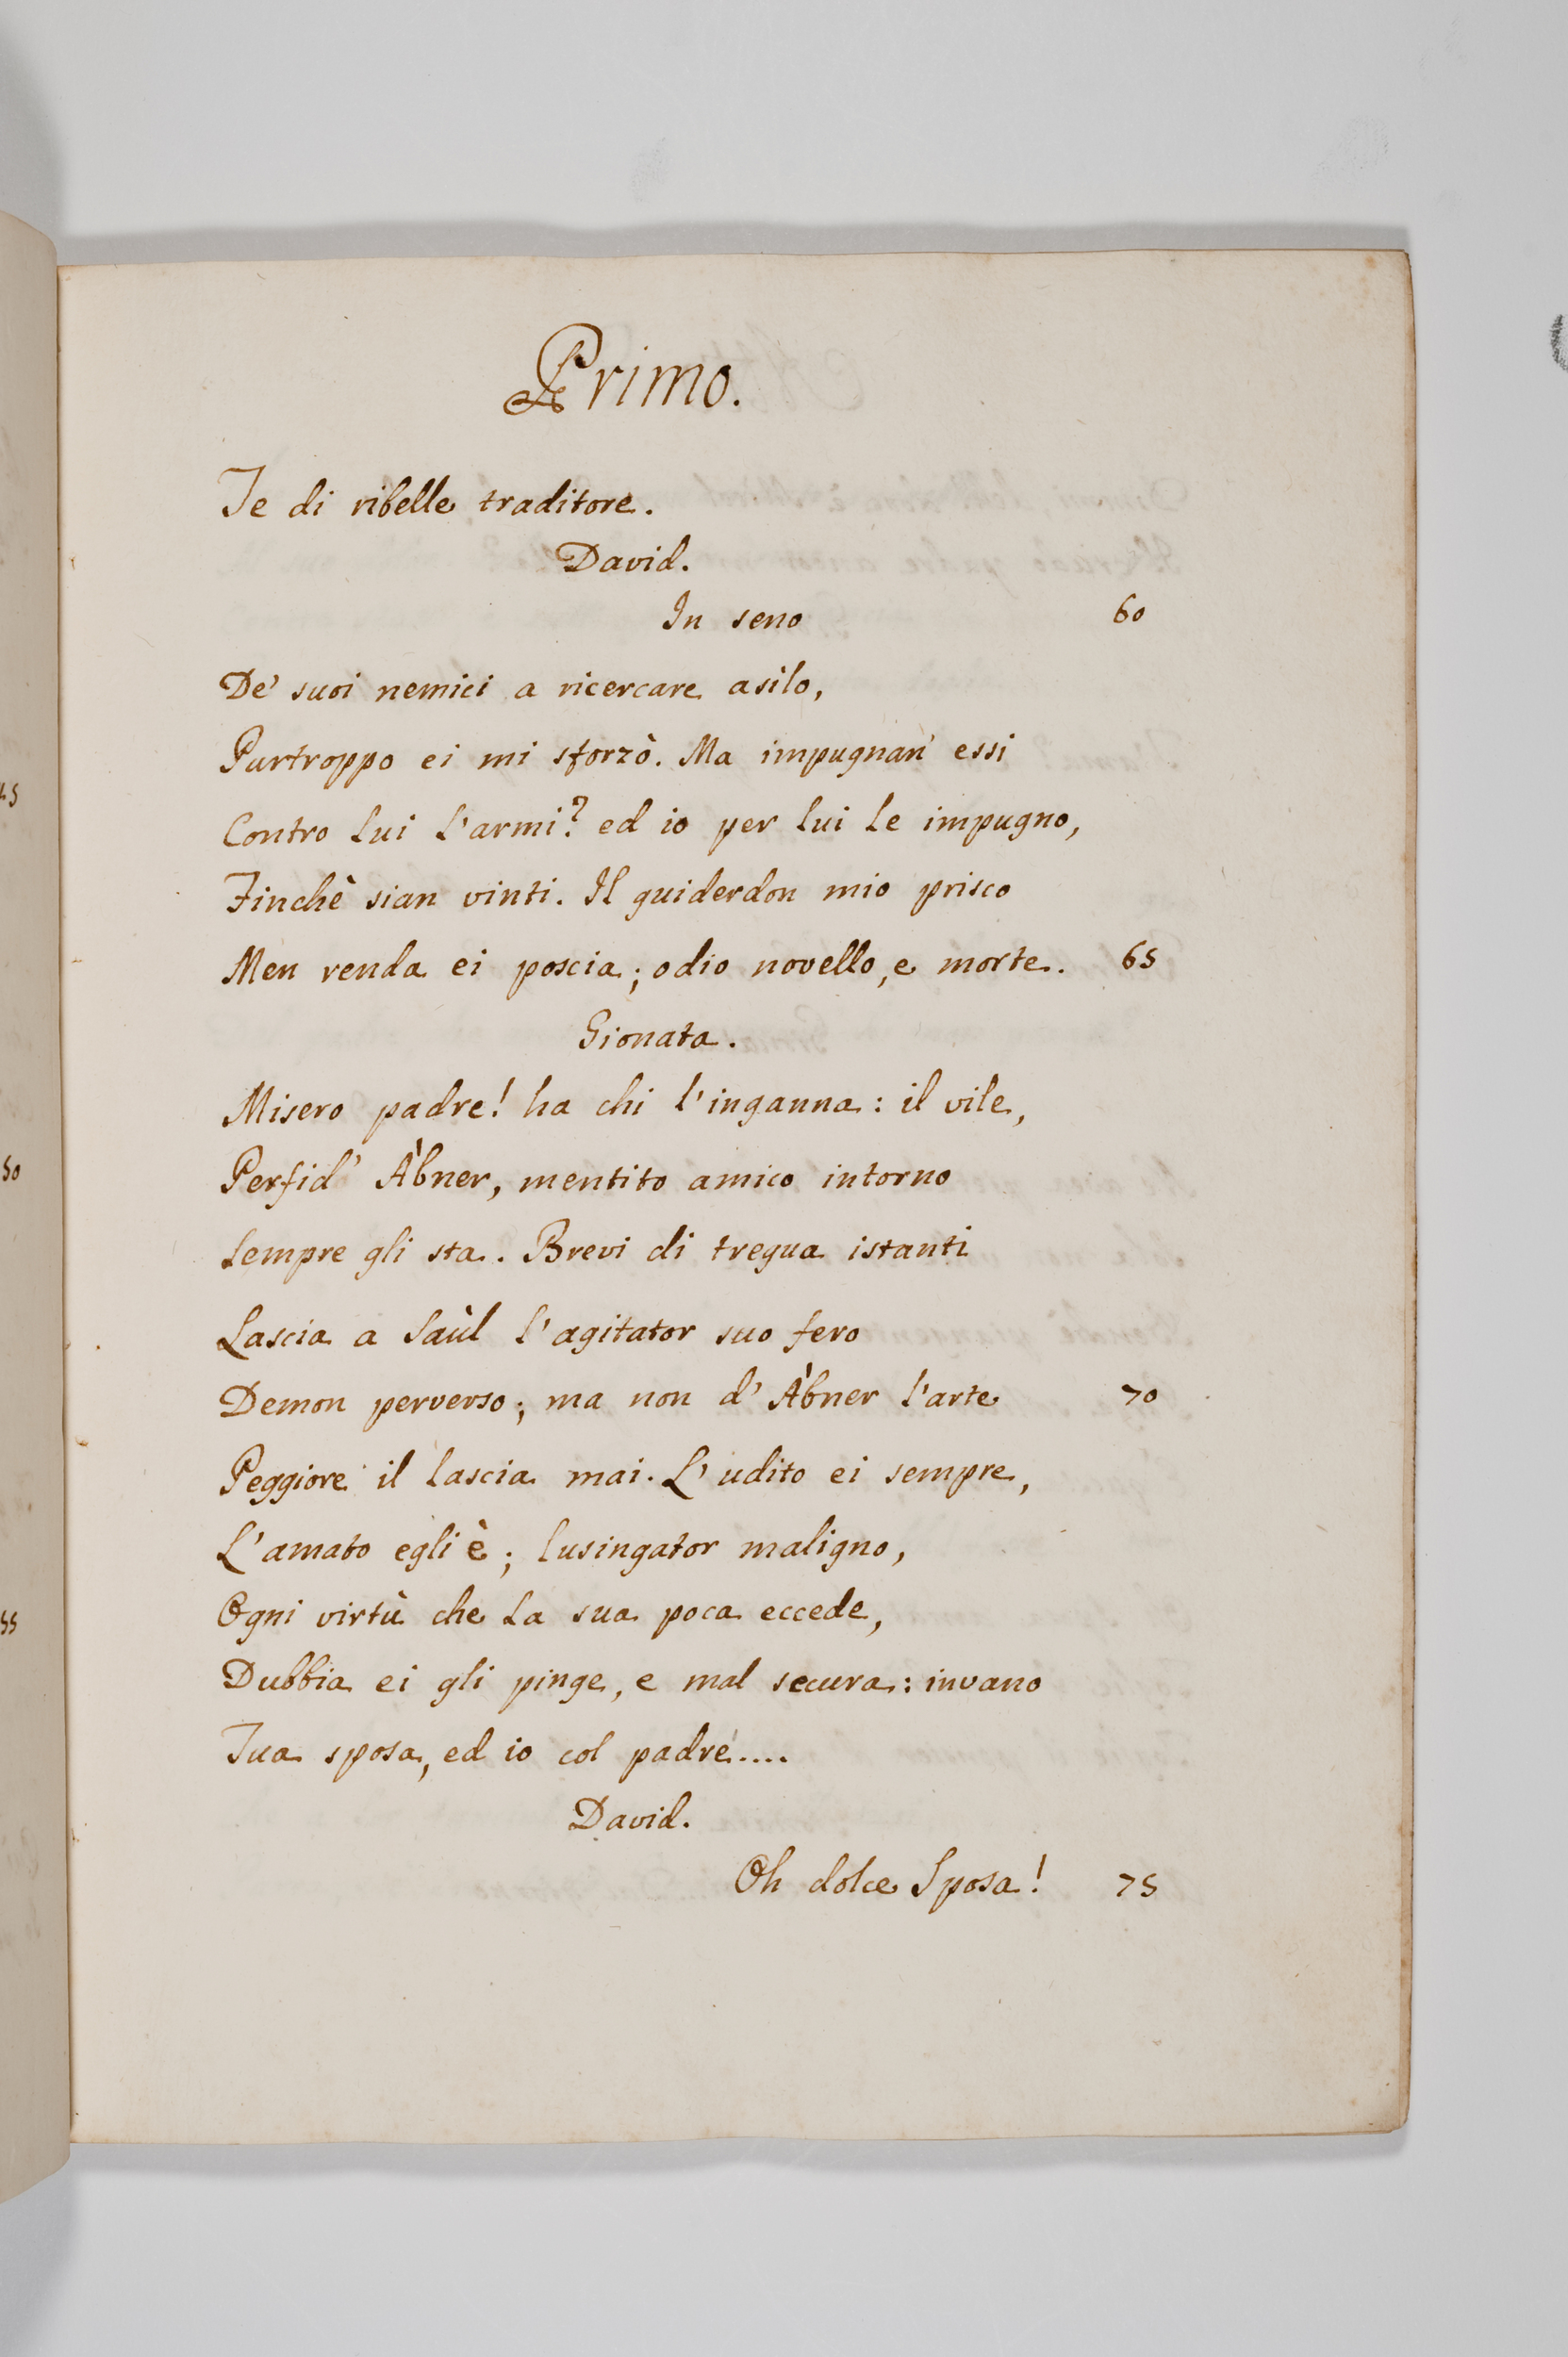 Primo.
Te di ribelle traditore.
David.
In seno 60
De' suoi nemici a ricercare asilo,
Purtroppo ei mi sforzò. Ma impugnan' essi
Contro lui l'armi? ed io per lui le impugno,
Finchè sian vinti. Il guiderdon mio prisco
Men renda ei poscia; odio novello, e morte. 65
Gionata.
Misero padre! ha chi l'inganna: il vile,
Perfid' Àbner, mentito amico intorno
Sempre gli sta. Brevi di tregua istanti
Lascia a Saùl l'agitator suo fero
Demon perverso; ma non d' Àbner l'arte 70
Peggiore il lascia mai. L'udito ei sempre,
L'amato egli è; lusingator maligno,
Ogni virtù che la sua poca eccede,
Dubbia ei gli pinge, e mal secura: invano
Tua sposa, ed io col padre....
David.
Oh dolce Sposa! 75
50
55